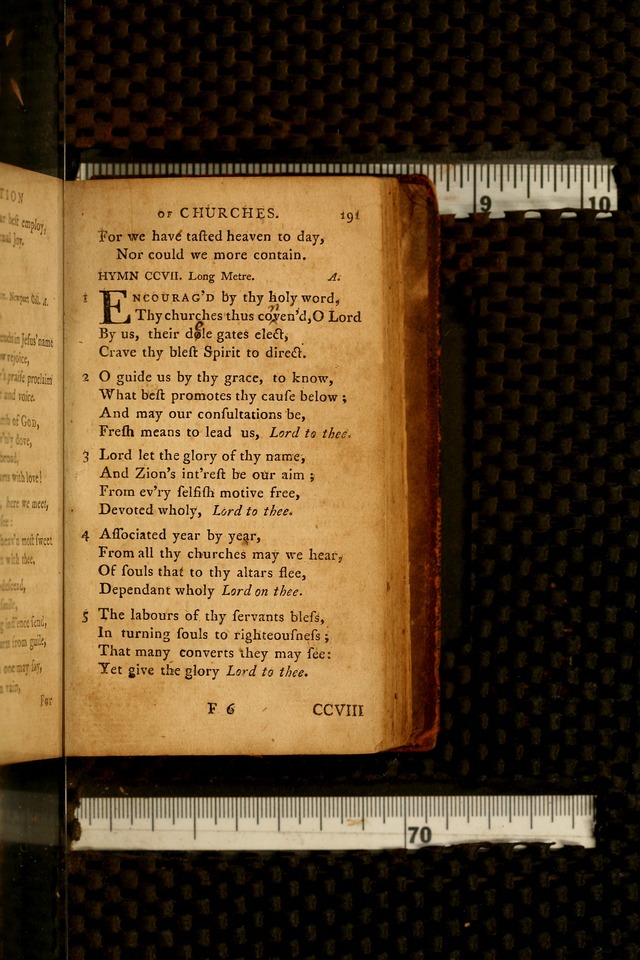 TION
beſt employ,
joy.
Newport Col. A.
in Jeſus' name
rejoice,
praiſe proclaim
and voice.
of God,
dove,
with love!
here we meet,
ſee:
moſt ſweet
with thee.
ſend,
from guile,
one may ſay,
vain,
For
OF CHURCHES. 191
For we have taſted heaven to day,
Nor could we more contain.
HYMN CCVII. Long Metre. A.
1 ENCOURAG'D by thy holy word,
Thy churches thus coven'd, O Lord
By us, their dele gates elect,
Crave thy bleſt Spirit to direct.
2 O guide us by thy grace, to know,
What beſt promotes thy cauſe below;
And may our conſultations be,
Freſh means to lead us, Lord to thee.
3 Lord let the glory of thy name,
And Zion's int'reſt be our aim;
From ev'ry ſelfiſh motive free,
Devoted wholy, Lord to thee.
4 Aſſociated year by year,
From all thy churches may we hear,
Of ſouls that to thy altars flee,
Dependant wholy Lord on thee.
5 The labours of thy ſervants bleſs,
In turning ſouls to righteouſneſs;
That many converts they may ſee:
Yet give the glory Lord to thee.
F 6 CCVIII
9 10
70